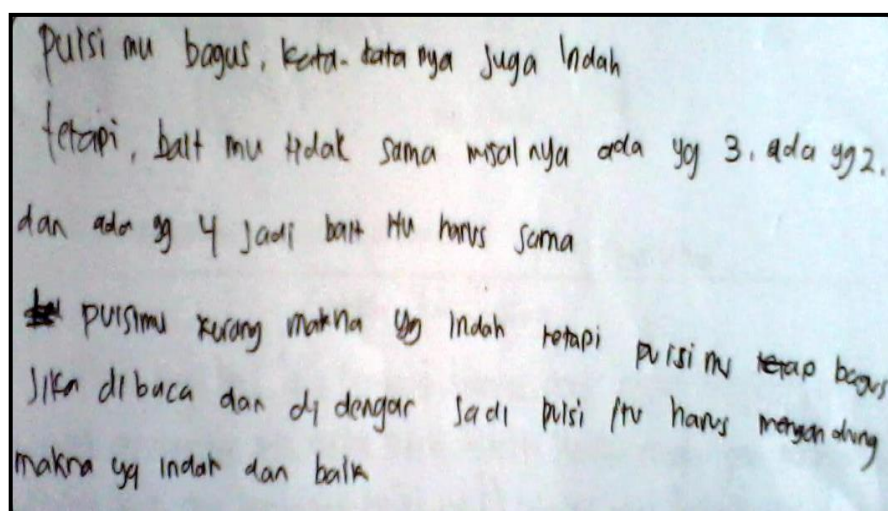 puisi mu bagus, kata-kata nya juga indah
tetapi, bait mu tidak sama misal nya ada yg 3, ada yg 2,
dan ada yg 4 jadi bait itu harus sama
puisimu kurang makna yg indah tetapi puisi mu tetap bagus
jika dibaca dan di dengar jadi puisi itu harus mengandung
makna yg indah dan baik